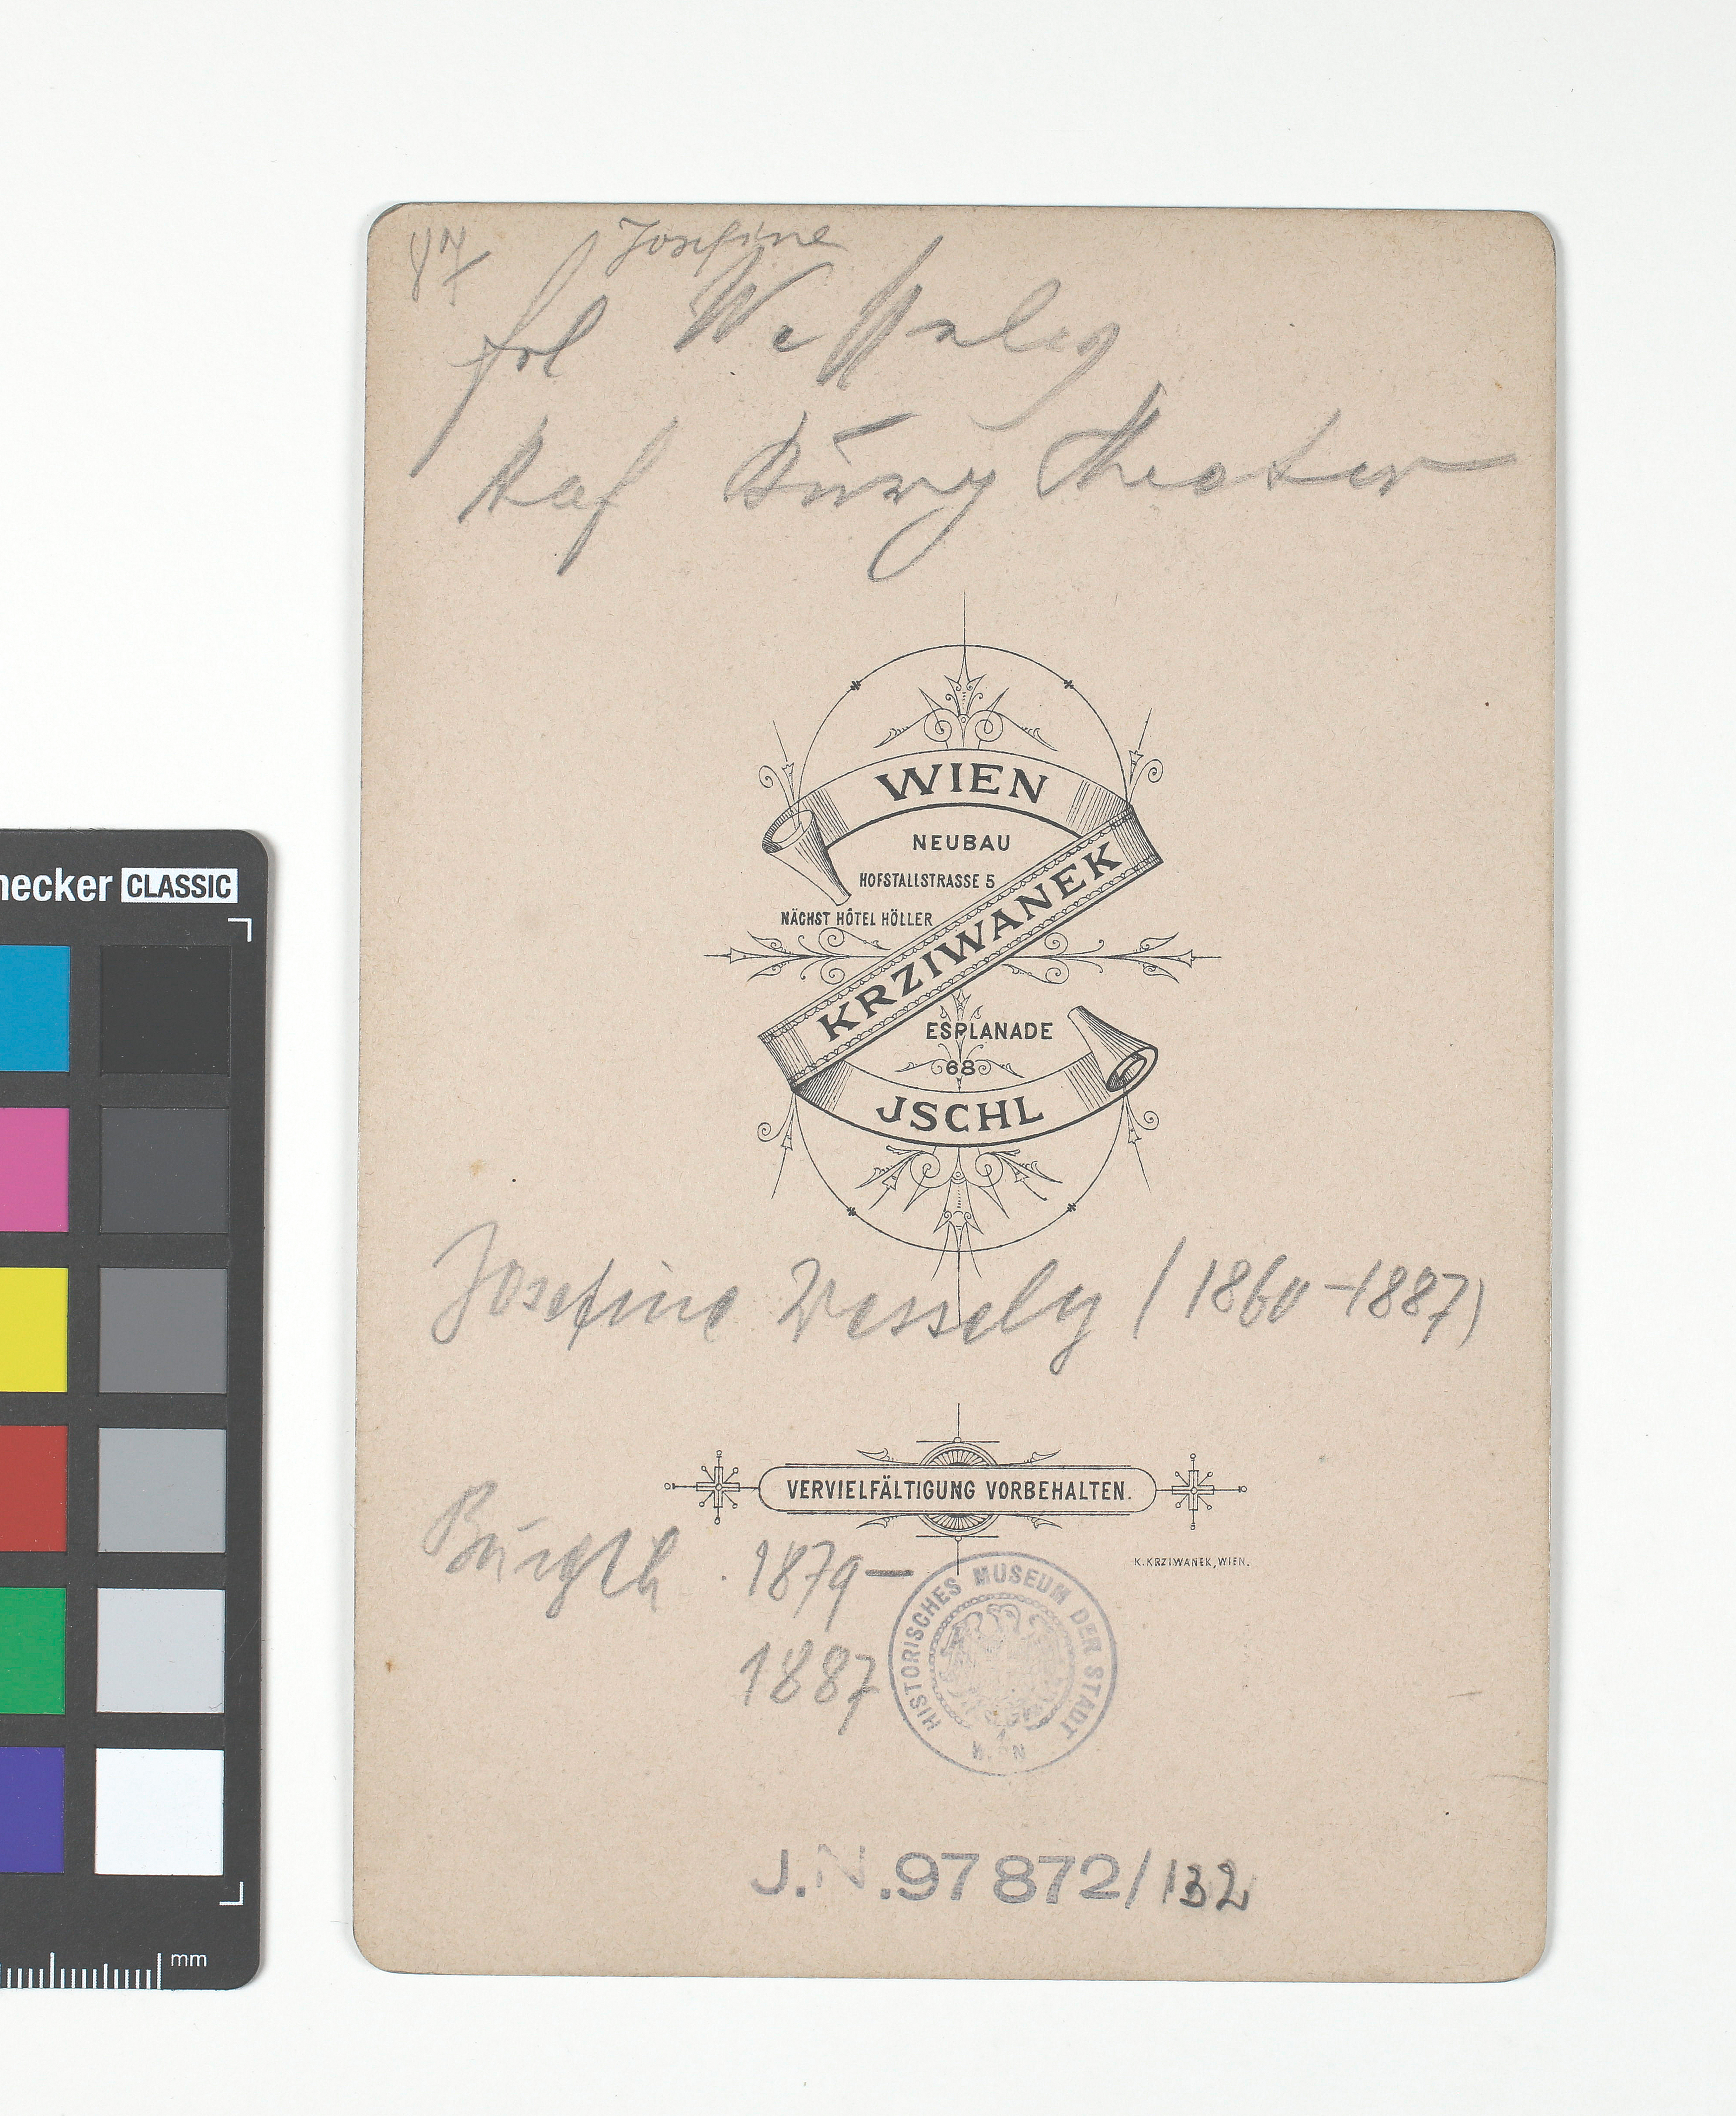 Josefine
frl Wessely
Hof Burg Theater
WIEN
NEUBAU
HOFSTALLSTRASSE 5
NÄCHST HÔTEL HÖLLER
KRZIWANEK
ESPLANADE
68
JSCHL
Josefine Wessely (1860-1887)
VERVIELFÄLTIGUNG VORBEHALTEN.
K. KRZIWANEK, WIEN.
Burgth. 1879-
1887
HISTORISCHES MUSEUM DER STADT WIEN
J.N. 97872/132
necker CLASSIC
mm